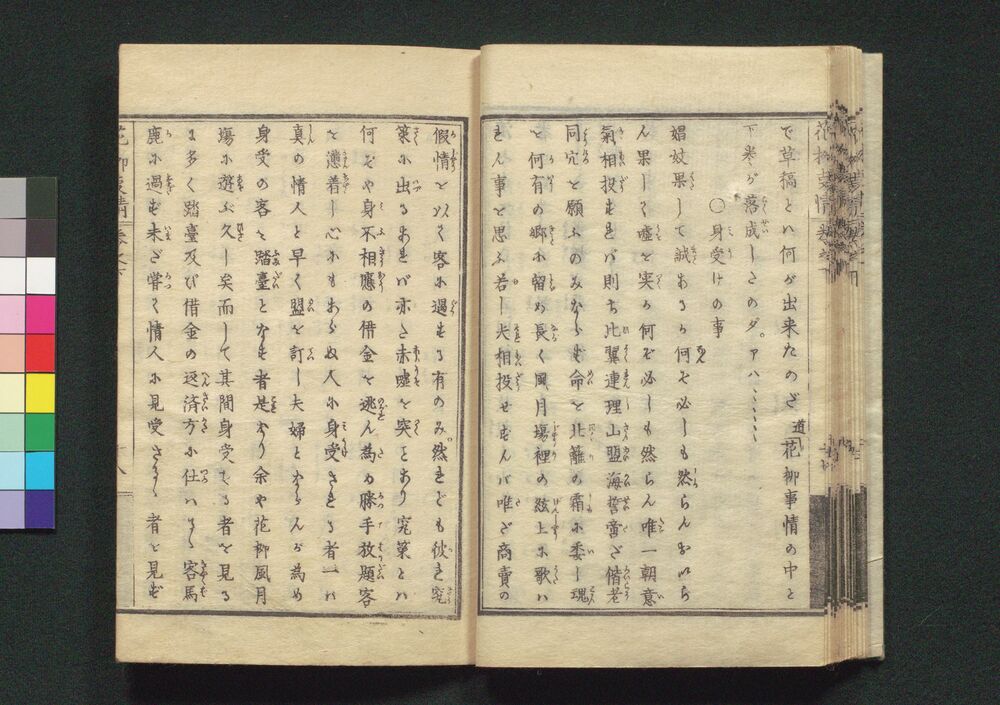 で草稿とハ何が出来たのだ 道 花柳事情の中と
下巻が落成したのダ。アハヽヽヽヽヽ
〇身受けの事
娼妓果して誠あるか何そ必しも然らんおいら
ん果して嘘と実か何ぞ必しも然らん唯一朝意
氣相投もれバ則ち比翼連理山盟海誓啻ざ偕老
同穴と願ふのみならも命と北籬の霜ホ委し魂
と何有の郷ホ留め長く風月場裡の絃上ホ歌ハ
れん事と思ふ若し夫相投せもんバ唯ざ商賣の
假情と以て客ホ過もる有のみ。然れども彼れ窮
策ホ出るあれバ亦た赤嘘を突くあり窮策とハ
何ぞや身不相應の借金を逃れん為め勝手放題客
を濾着し心ホもあらぬ人ホ身受されるる者一ハ
真の情人と早く盟を訂し夫婦とならんが為め
身受の客を踏臺となも者是なり余や花柳風月
場ホ遊ぶ久し矣而して其間身受もる者を見る
に多く踏臺及び借金の返済方ホ仕ハる客馬
鹿ホ過も未ざ嘗て情人ホ見受さるゝ者と見も
花柳事情 巻之下